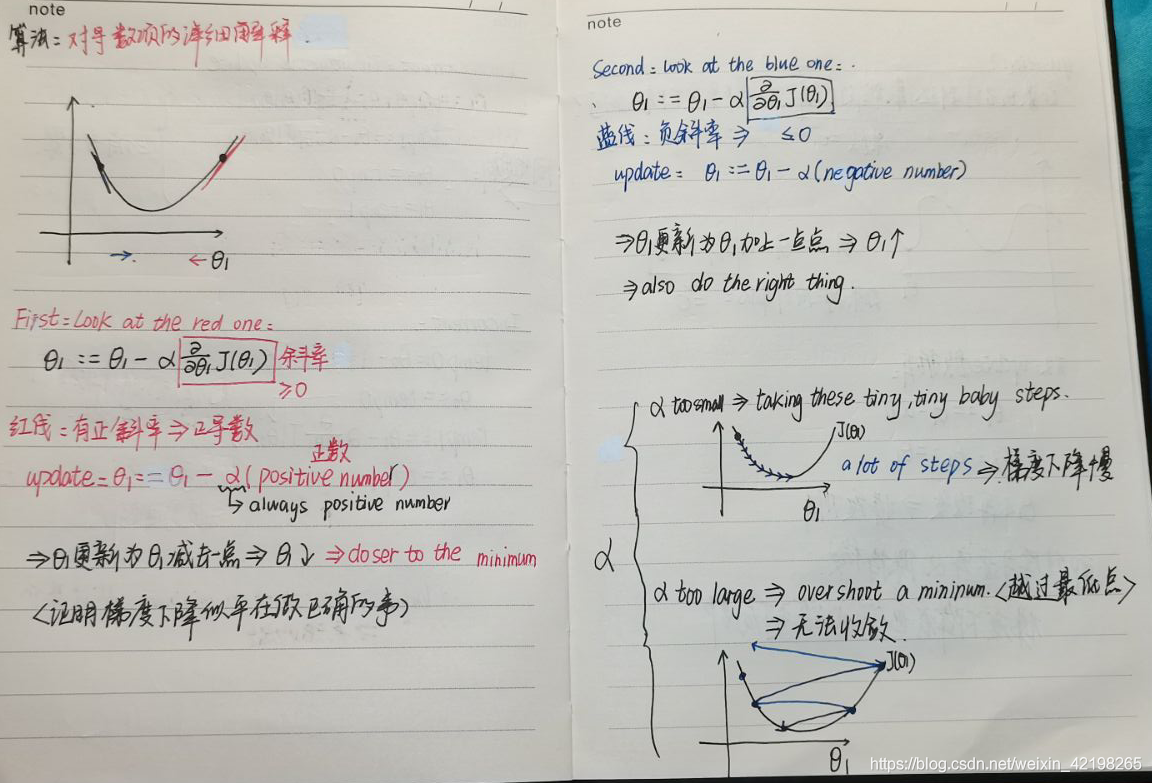 note
算法：对导数项的详细解释.
θ₁
First：Look at the red one：
θ₁ := θ₁ - α ∂/∂θ₁ J(θ₁) 斜率
≥0
红线：有正斜率⇒正导数
正数
update：θ₁ := θ₁ - α(positive number)
↳ always positive number
⇒θ₁更新为θ₁减去一点⇒θ₁↓ ⇒closer to the minimum
<证明梯度下降似乎在做正确的事>
note
Second：Look at the blue one：
θ₁ := θ₁ - α ∂/∂θ₁ J(θ₁)
蓝线：负斜率⇒ ≤0
update： θ₁ := θ₁ - α(negative number)
⇒θ₁更新为θ₁加上一点点⇒θ₁↑
⇒also do the right thing.
α too small ⇒ taking these tiny, tiny baby steps.
J(θ₁)
a lot of steps ⇒ 梯度下降慢
θ₁
α
α too large ⇒ overshoot a mininum.<越过最低点>
⇒无法收敛.
J(θ₁)
θ₁
https://blog.csdn.net/weixin_42198265